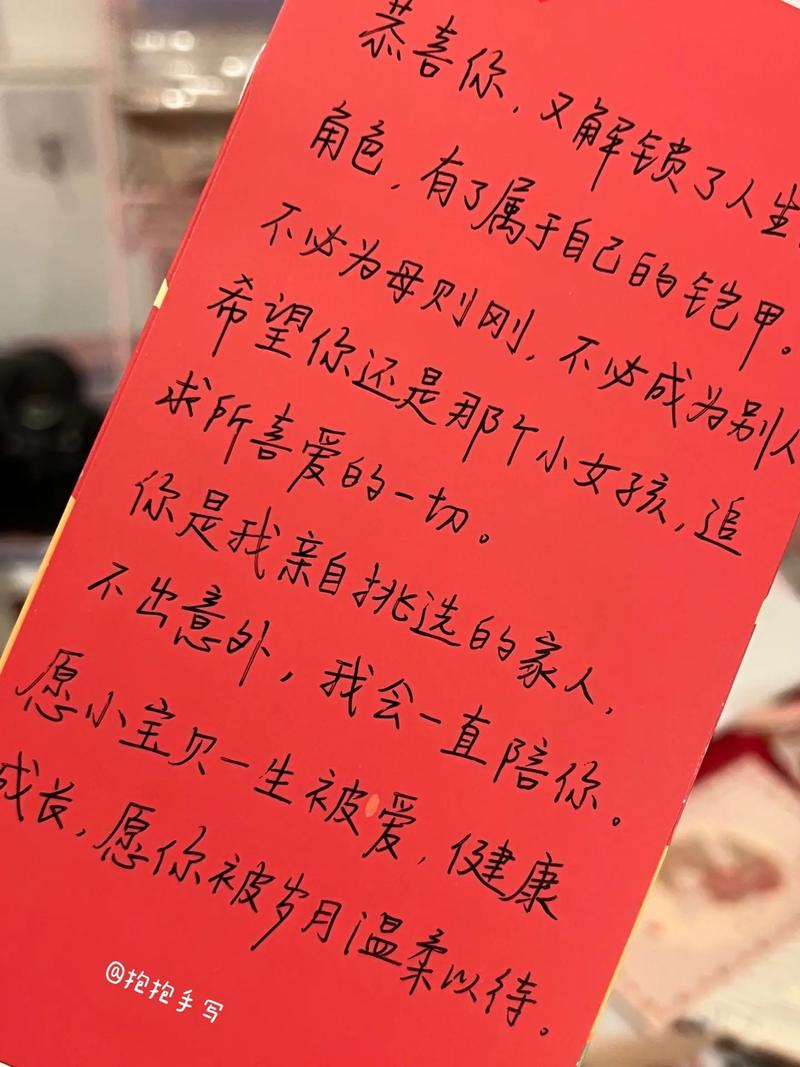 恭喜你,又解锁了人生
角色,有了属于自己的铠甲。
不必为母则刚,不必成为别人
希望你还是那个小女孩,追
求所喜爱的一切。
你是我亲自挑选的家人,
不出意外,我会一直陪你。
愿小宝贝一生被爱,健康
成长,愿你被岁月温柔以待。
@抱抱手写